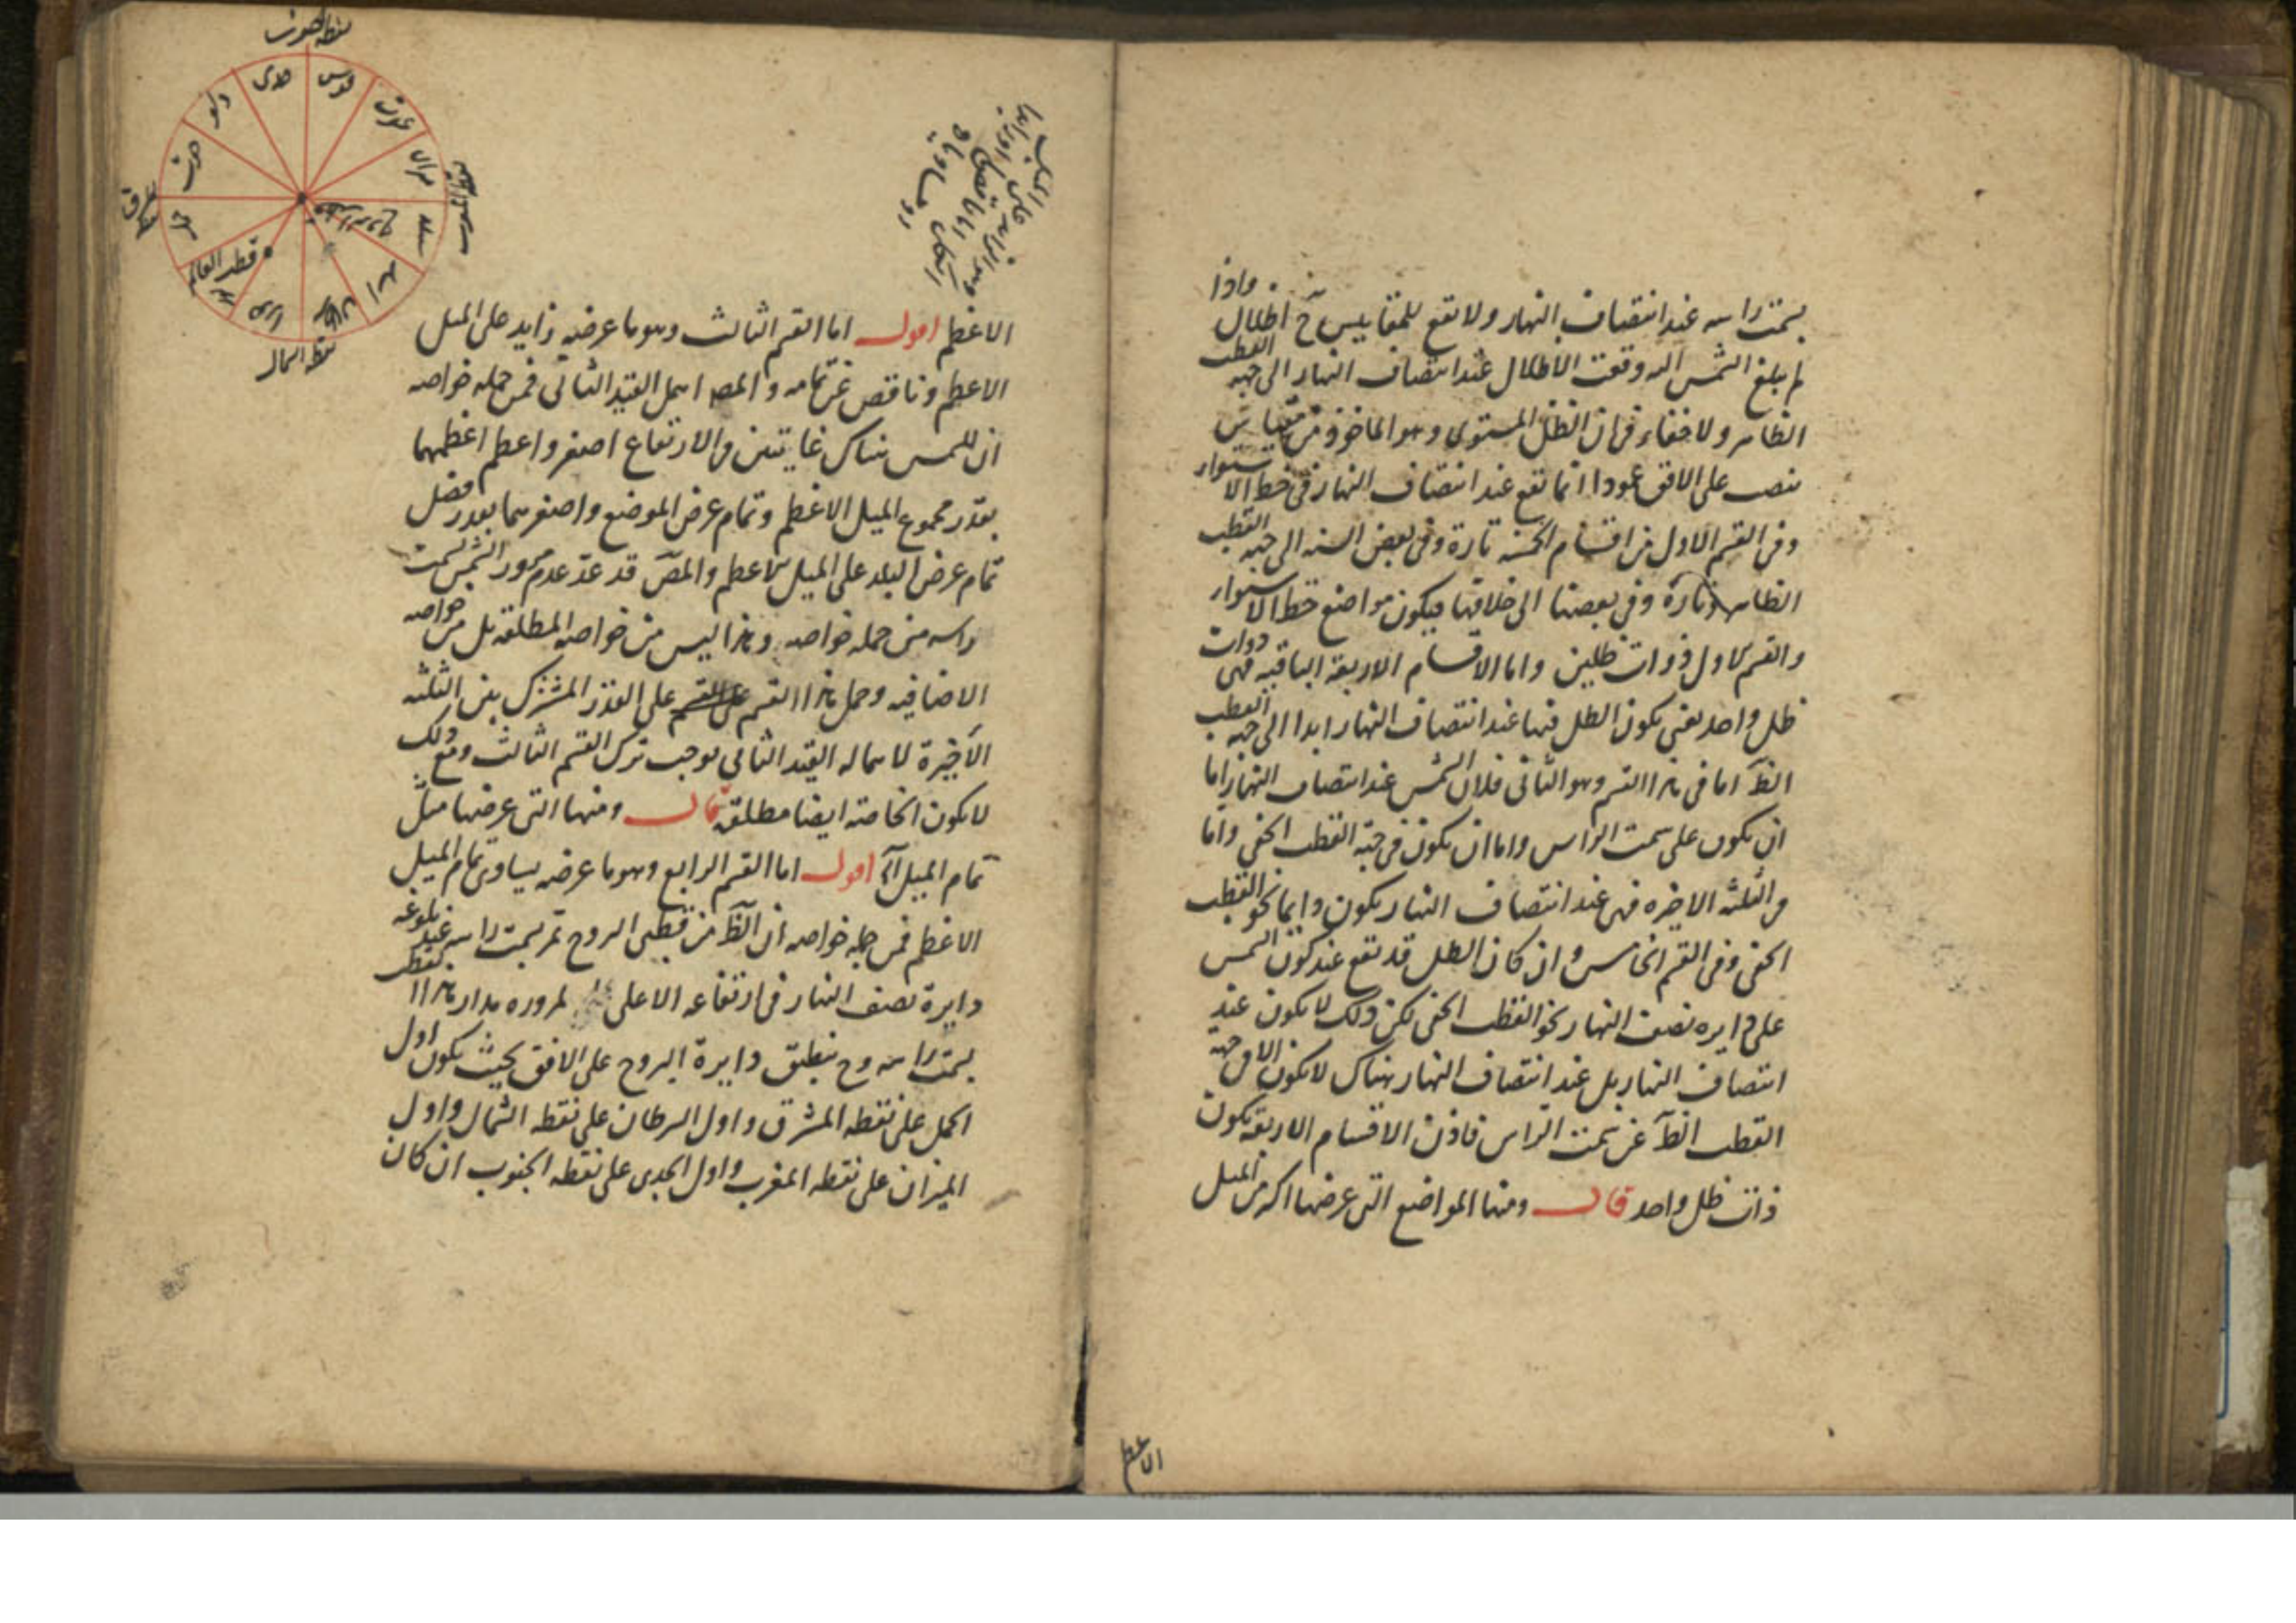 واذا
بسمت راسه عند انتصاف النهار ولا تقع للمقاييس ح اظلال
لم يبلغ الشمس اليه وقعت الاظلال عند انتصاف النهار الى جهة القطب
الظاهر ولا خفاء في ان الظل المستوى وهو الماخوذ من مقياس
ينصب على الافق عمودا انما تقع عند انتصاف النهار في خط الاستواء
وفي القسم الاول من اقسام الخمسة تارة وفي بعض السنه الى جهة القطب
الظاهر وتارة وفي بعضها الى خلافها فيكون مواضع خط الاستواء
والقسم الاول ذوات ظلين واما الاقسام الاربعة الباقيه فهى ذوات
ظل واحد يعنى يكون الظل فيها عند انتصاف النهار ابدا الى جهة القطب
الظ اما في هذا القسم وهو الثانى فلان الشمس عند انتصاف النهار اما
ان يكون على سمت الراس واما ان يكون في جهة القطب الخفى واما
في الثلثه الاخيره فهى عند انتصاف النهار يكون دايما نحو القطب
الخفى وفي القسم الخامس وان كان الظل قد تقع عند كون الشمس
على دايره نصف النهار نحو القطب الخفى لكن ذلك لا يكون عند
انتصاف النهار بل عند انتصاف النهار هناك لا تكون الا في جهة
القطب الظ عن سمت الراس فاذن الاقسام الاربعة يكون
ذات ظل واحد قال ومنها المواضع التى عرضها اكثر من الميل
الاعظم
الاعظم اقول اما القسم الثالث وهو ما عرضه زايد على الميل
الاعظم وناقص عن تمامه والمصـ اهمل القيد الثانى فمن جمله خواصه
ان للشمس هناك غايتين في الارتفاع اصغر واعظم اعظمهما
بقدر مجموع الميل الاعظم وتمام عرض الموضع واصغرهما بقدر فضل
تمام عرض البلد على الميل الاعظم والمص قد عد عدم مرور الشمس بسمت
راسه من جمله خواصه وهذا ليس من خواصه المطلقه بل من خواصه
الاضافيه وحمل هذا القسم على القدر المشترك بين الثلثه
الاخيرة لاهماله القيد الثانى يوجب ترك القسم الثالث ومع ذلك
لا يكون الخاصة ايضا مطلقة قال ومنها التى عرضها مثل
تمام الميل اقول اما القسم الرابع وهو ما عرضه يساوى تمام الميل
الاعظم فمن جمله خواصه ان الظ من قطبى البروج تمر بسمت راسه عند بلوغه
دايرة نصف النهار في ارتفاعه الاعلى لمرور مدار هذا القطب
بسمت راسه وح ينطبق دايرة البروج على الافق بحيث يكون اول
الحمل على نقطه المشرق واول السرطان على نقطه الشمال واول
الميزان على نقطه المغرب واول الجدى على نقطه الجنوب ان كان
نقطه الجنوب
جدى
قوس
عقرب
ميزان
سنبله
اسد
سرطان
حمل
حوت
دلو
قطب العالم
نقطه الشمال